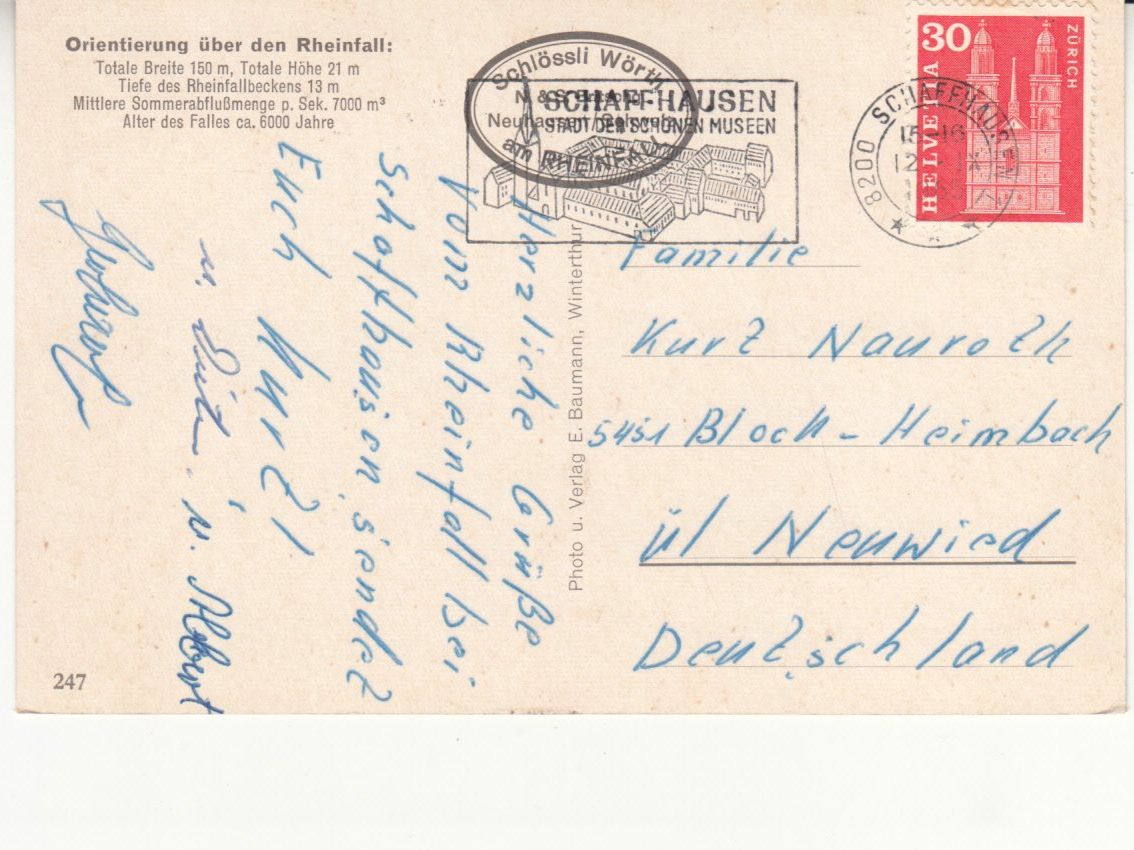 Orientierung über den Rheinfall:
Totale Breite 150 m, Totale Höhe 21 m
Tiefe des Rheinfallbeckens 13 m
Mittlere Sommerabflußmenge p. Sek. 7000 m³
Alter des Falles ca. 6000 Jahre
Schlössli Wörth
Neuhausen
am RHEINFALL
SCHAFFHAUSEN
STADT DER SCHÖNEN MUSEEN
8200 SCHAFFHAUSEN
15-16
30
HELVETIA
ZÜRICH
Herzliche Grüße
Vom Rheinfall bei
Schaffhausen sendet
Euch Kurt
u. Albert
Photo u. Verlag E. Baumann, Winterthur
Familie
Kurt Nauroth
5451 Block-Heimbach
ül Neuwied
Deutschland
247